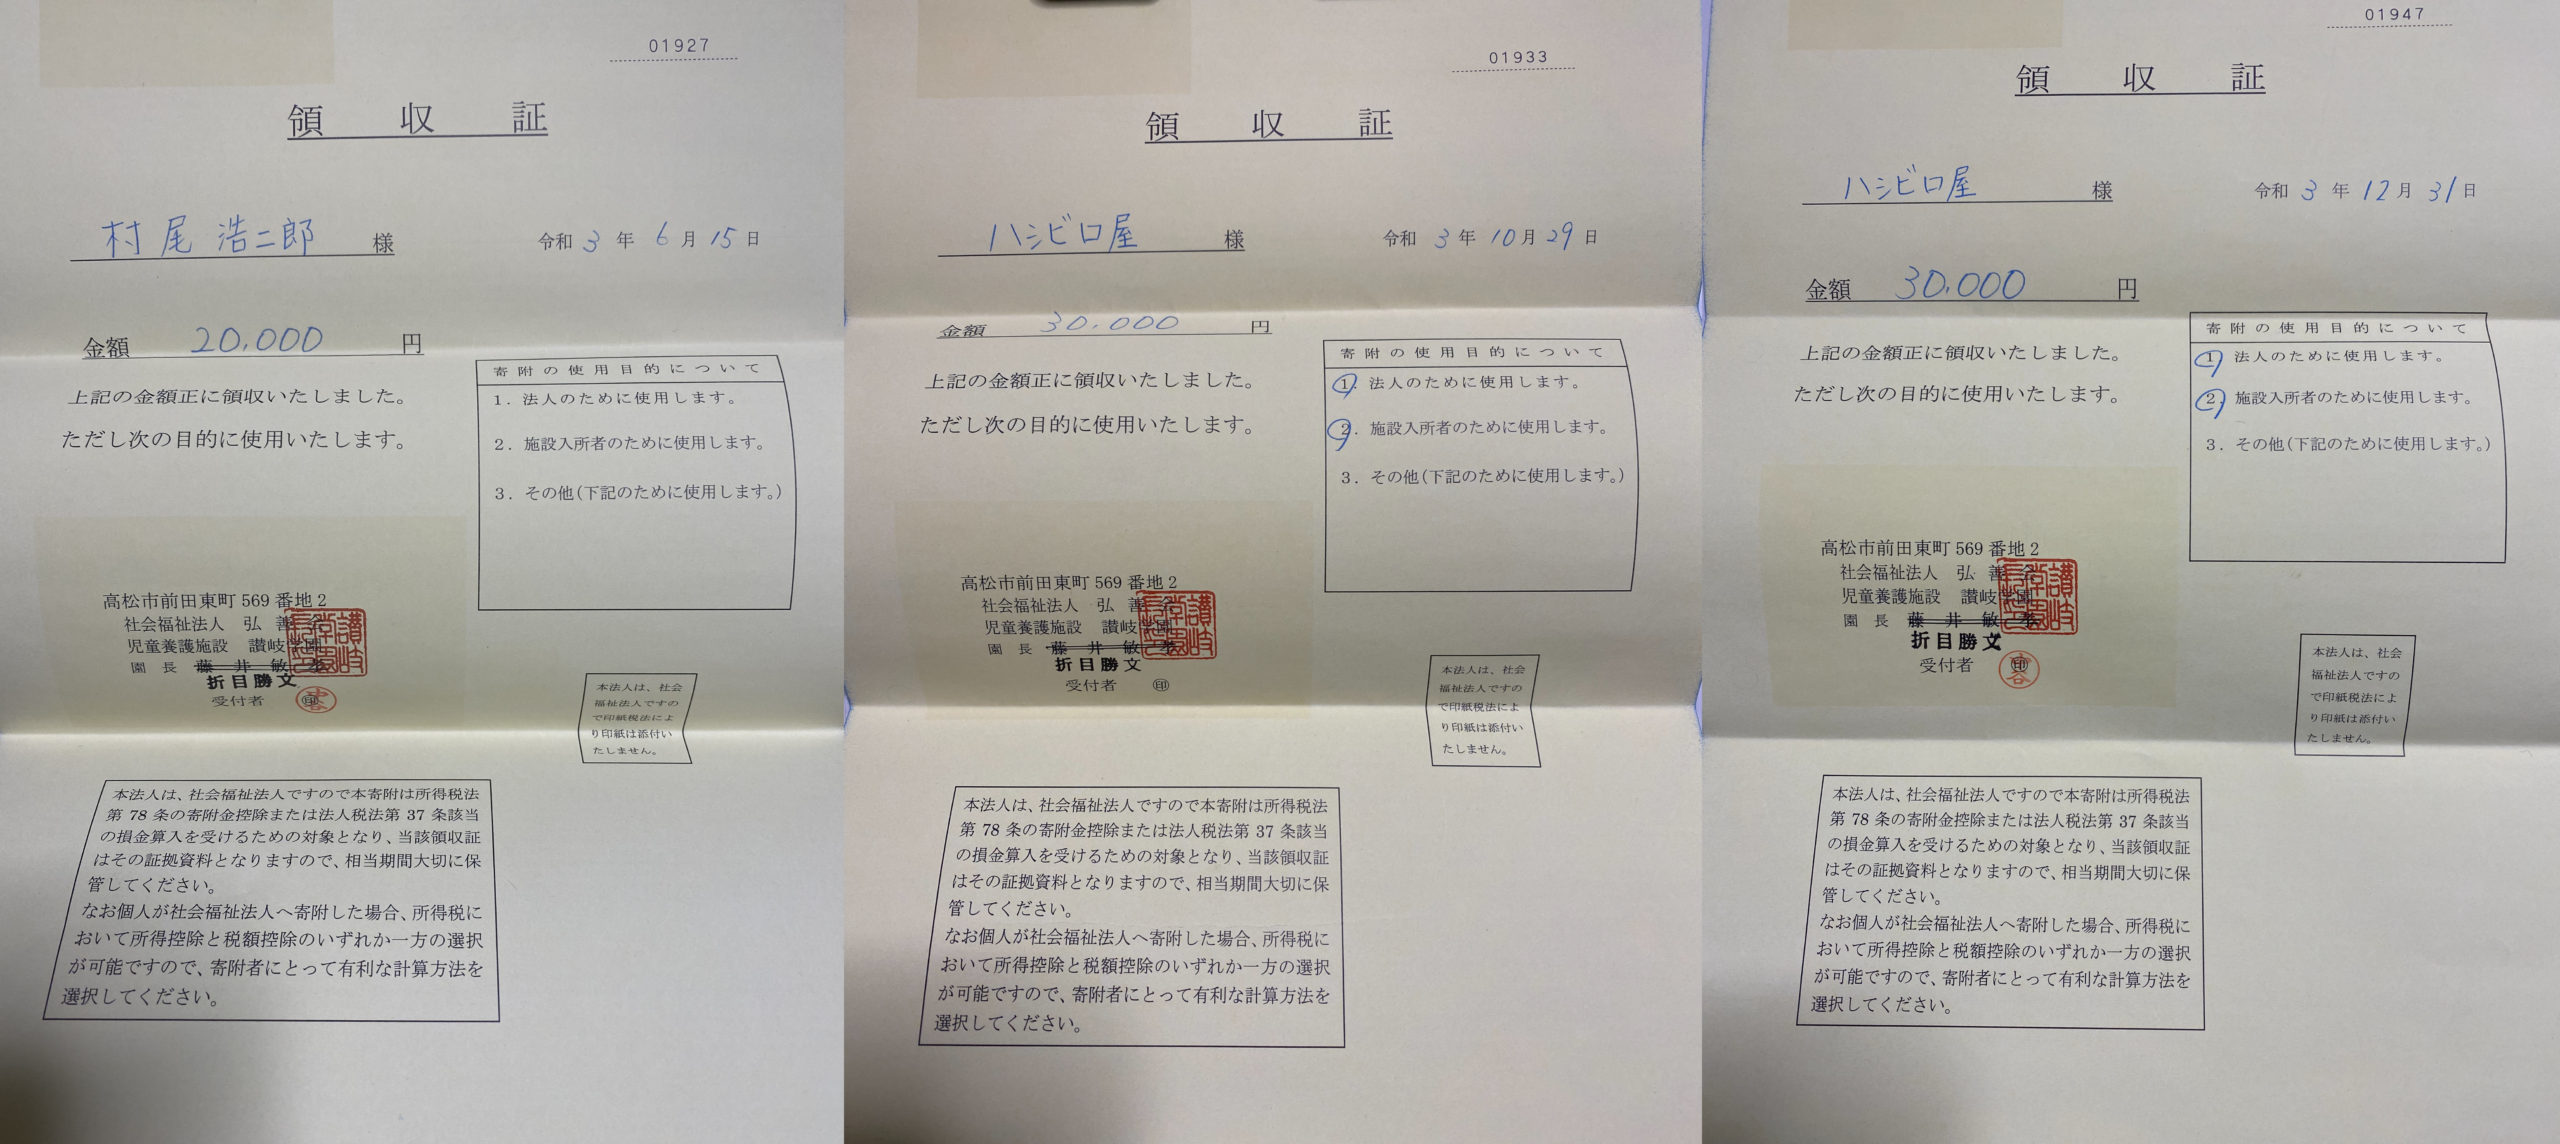 01927
領収証
村尾浩二郎 様
令和 3 年 6 月 15 日
金額 20,000 円
上記の金額正に領収いたしました。
ただし次の目的に使用いたします。
寄附の使用目的について
1. 法人のために使用します。
2. 施設入所者のために使用します。
3. その他(下記のために使用します。)
高松市前田東町 569 番地 2
社会福祉法人 弘善会
児童養護施設 讃岐学園
園長 藤井敏孝
折目勝文
受付者 印
本法人は、社会
福祉法人ですの
で印紙税法によ
り印紙は添付い
たしません。
本法人は、社会福祉法人ですので本寄附は所得税法
第 78 条の寄附金控除または法人税法第 37 条該当
の損金算入を受けるための対象となり、当該領収証
はその証拠資料となりますので、相当期間大切に保
管してください。
なお個人が社会福祉法人へ寄附した場合、所得税に
おいて所得控除と税額控除のいずれか一方の選択
が可能ですので、寄附者にとって有利な計算方法を
選択してください。
01933
領収証
ハシビロ屋 様
令和 3 年 10 月 29 日
金額 30,000 円
上記の金額正に領収いたしました。
ただし次の目的に使用いたします。
寄附の使用目的について
1. 法人のために使用します。
2. 施設入所者のために使用します。
3. その他(下記のために使用します。)
高松市前田東町 569 番地 2
社会福祉法人 弘善会
児童養護施設 讃岐学園
園長 藤井敏孝
折目勝文
受付者 印
本法人は、社会
福祉法人ですの
で印紙税法によ
り印紙は添付い
たしません。
本法人は、社会福祉法人ですので本寄附は所得税法
第 78 条の寄附金控除または法人税法第 37 条該当
の損金算入を受けるための対象となり、当該領収証
はその証拠資料となりますので、相当期間大切に保
管してください。
なお個人が社会福祉法人へ寄附した場合、所得税に
おいて所得控除と税額控除のいずれか一方の選択
が可能ですので、寄附者にとって有利な計算方法を
選択してください。
01947
領収証
ハシビロ屋 様
令和 3 年 12 月 31 日
金額 30,000 円
上記の金額正に領収いたしました。
ただし次の目的に使用いたします。
寄附の使用目的について
1. 法人のために使用します。
2. 施設入所者のために使用します。
3. その他(下記のために使用します。)
高松市前田東町 569 番地 2
社会福祉法人 弘善会
児童養護施設 讃岐学園
園長 藤井敏孝
折目勝文
受付者 印
本法人は、社会
福祉法人ですの
で印紙税法によ
り印紙は添付い
たしません。
本法人は、社会福祉法人ですので本寄附は所得税法
第 78 条の寄附金控除または法人税法第 37 条該当
の損金算入を受けるための対象となり、当該領収証
はその証拠資料となりますので、相当期間大切に保
管してください。
なお個人が社会福祉法人へ寄附した場合、所得税に
おいて所得控除と税額控除のいずれか一方の選択
が可能ですので、寄附者にとって有利な計算方法を
選択してください。